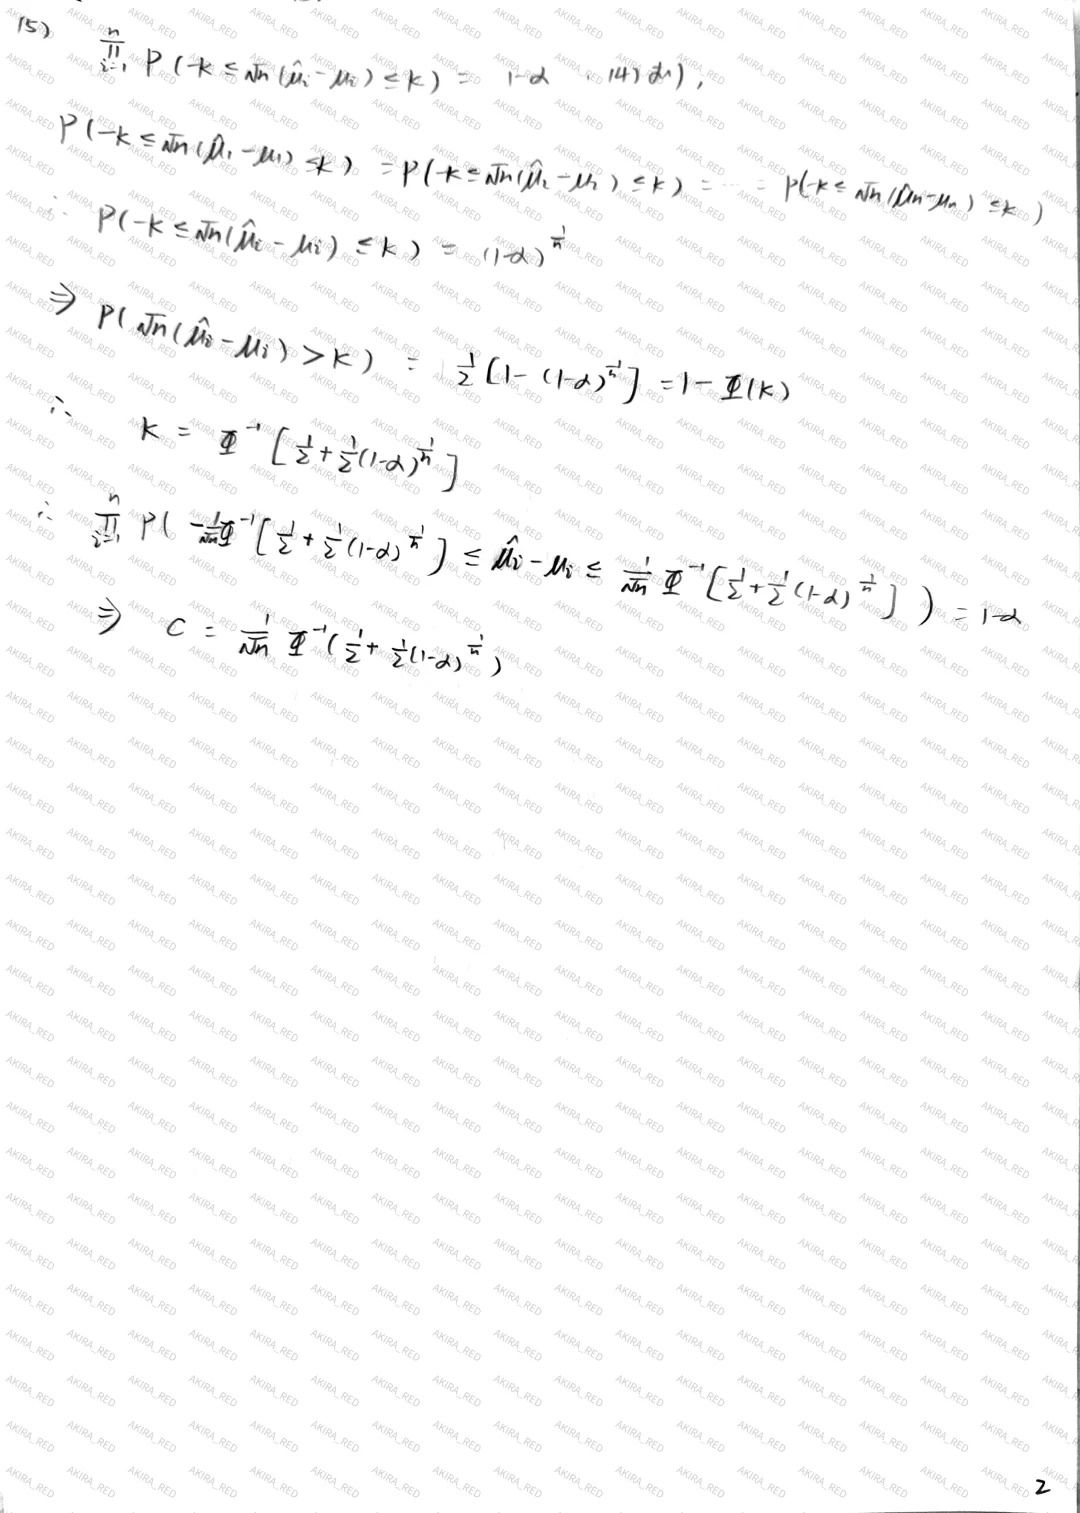 (5) ∏_{i=1}^{n} P(-k ≤ √n(μ̂i - μi) ≤ k) = 1-α . (4)より),
P(-k ≤ √n(μ̂1 - μ1) ≤ k) = P(-k ≤ √n(μ̂2 - μ2) ≤ k) = ... = P(-k ≤ √n(μ̂n - μn) ≤ k)
∴ P(-k ≤ √n(μ̂i - μi) ≤ k) = (1-α)^{1/n}
⇒ P(√n(μ̂i - μi) > k) = 1/2 [1 - (1-α)^{1/n}] = 1 - Φ(k)
∴ k = Φ^{-1} [1/2 + 1/2(1-α)^{1/n}]
∴ ∏_{i=1}^{n} P(-1/√n Φ^{-1}[1/2 + 1/2(1-α)^{1/n}] ≤ μ̂i - μi ≤ 1/√n Φ^{-1}[1/2 + 1/2(1-α)^{1/n}]) = 1-α
⇒ C = 1/√n Φ^{-1}(1/2 + 1/2(1-α)^{1/n})
AKIRA_RED
2